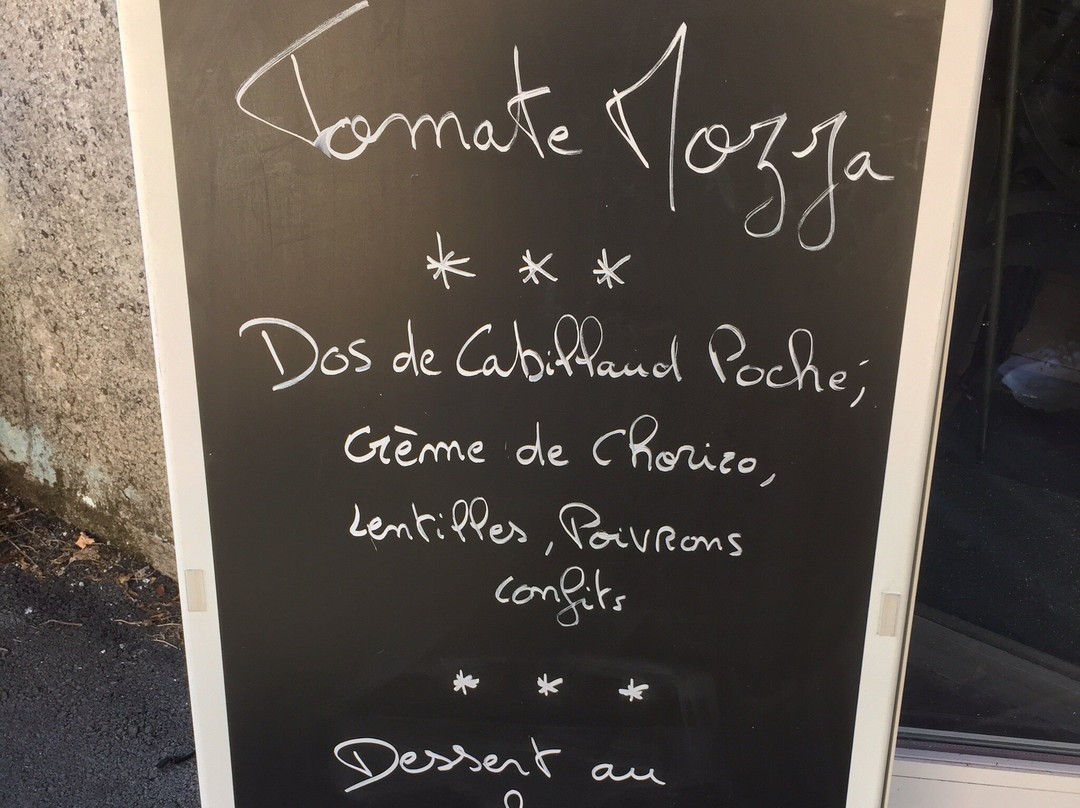 Tomate Mozza
* * *
Dos de Cabillaud Poché,
Crème de Chorizo,
Lentilles, Poivrons
confits
* * *
Dessert au